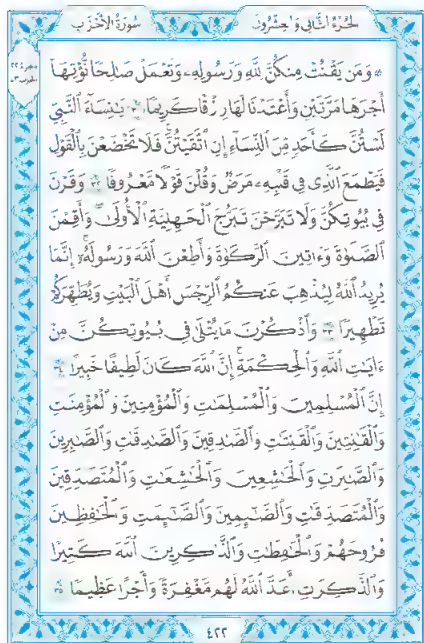 سُورَةُ الأَحْزَاب الجُزءُ الثَّانِي وَالعِشْرُونَ
۞ وَمَن يَقْنُتْ مِنكُنَّ لِلَّهِ وَرَسُولِهِۦ وَتَعْمَلْ صَٰلِحًا نُّؤْتِهَآ
أَجْرَهَا مَرَّتَيْنِ وَأَعْتَدْنَا لَهَا رِزْقًا كَرِيمًا ٣١ يَٰنِسَآءَ ٱلنَّبِيِّ
لَسْتُنَّ كَأَحَدٍ مِّنَ ٱلنِّسَآءِ إِنِ ٱتَّقَيْتُنَّ فَلَا تَخْضَعْنَ بِٱلْقَوْلِ
فَيَطْمَعَ ٱلَّذِى فِى قَلْبِهِۦ مَرَضٌ وَقُلْنَ قَوْلًا مَّعْرُوفًا ٣٢ وَقَرْنَ
فِى بُيُوتِكُنَّ وَلَا تَبَرَّجْنَ تَبَرُّجَ ٱلْجَٰهِلِيَّةِ ٱلْأُولَىٰ وَأَقِمْنَ
ٱلصَّلَوٰةَ وَءَاتِينَ ٱلزَّكَوٰةَ وَأَطِعْنَ ٱللَّهَ وَرَسُولَهُۥٓ إِنَّمَا
يُرِيدُ ٱللَّهُ لِيُذْهِبَ عَنكُمُ ٱلرِّجْسَ أَهْلَ ٱلْبَيْتِ وَيُطَهِّرَكُمْ
تَطْهِيرًا ٣٣ وَٱذْكُرْنَ مَا يُتْلَىٰ فِى بُيُوتِكُنَّ مِنْ
ءَايَٰتِ ٱللَّهِ وَٱلْحِكْمَةِ إِنَّ ٱللَّهَ كَانَ لَطِيفًا خَبِيرًا ٣٤
إِنَّ ٱلْمُسْلِمِينَ وَٱلْمُسْلِمَٰتِ وَٱلْمُؤْمِنِينَ وَٱلْمُؤْمِنَٰتِ
وَٱلْقَٰنِتِينَ وَٱلْقَٰنِتَٰتِ وَٱلصَّٰدِقِينَ وَٱلصَّٰدِقَٰتِ وَٱلصَّٰبِرِينَ
وَٱلصَّٰبِرَٰتِ وَٱلْخَٰشِعِينَ وَٱلْخَٰشِعَٰتِ وَٱلْمُتَصَدِّقِينَ
وَٱلْمُتَصَدِّقَٰتِ وَٱلصَّٰٓئِمِينَ وَٱلصَّٰٓئِمَٰتِ وَٱلْحَٰفِظِينَ
فُرُوجَهُمْ وَٱلْحَٰفِظَٰتِ وَٱلذَّٰكِرِينَ ٱللَّهَ كَثِيرًا
وَٱلذَّٰكِرَٰتِ أَعَدَّ ٱللَّهُ لَهُم مَّغْفِرَةً وَأَجْرًا عَظِيمًا ٣٥
٤٢٢